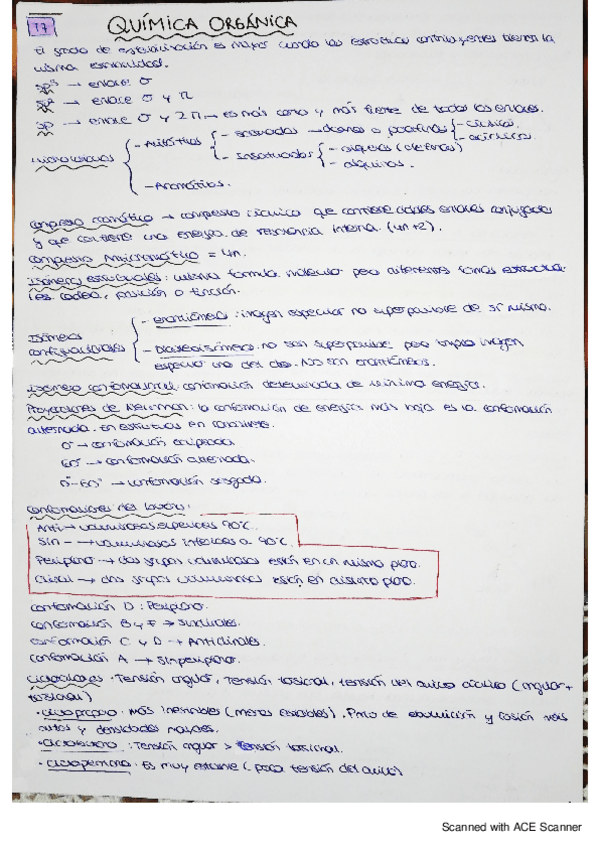 17 QUÍMICA ORGÁNICA
El grado de estabilización es mayor cuando las estructuras contribuyentes tienen la
misma estabilidad.
sp³ → enlace σ
sp² → enlace σ y π
sp → enlace σ y 2π → es más corto y más fuerte de todos los enlaces.
Hidrocarburos
- Alifáticos
- saturados → alcanos o parafinas
- cíclicos
- acíclicos
- Insaturados
- alquenos (olefinas)
- alquinos.
- Aromáticos.
Compuesto aromático → compuesto cíclico que contiene dobles enlaces conjugados
y que contiene una energía de resonancia interna (4n+2).
Compuesto = 4n.
Isómeros estructurales: misma fórmula molecular pero diferentes formas estructura-
les cadena, posición o función.
Isómeros
configuracionales
- enantiómeros: imagen especular no superponible de sí misma.
- Diastereoisómeros: no son superponibles pero tampoco imagen
especular una del otro. NO son enantiómeros.
Isómero conformacional: conformación determinada de mínima energía.
Proyecciones de Newman: la conformación de energía más baja es la conformación
alternada. en estructuras en
0° → conformación eclipsada
60° → conformación alternada.
0°-60° → conformación sesgada.
Conformaciones del butano:
Anti → voluminosos superiores 90°C.
Sin → voluminosos inferiores a 90°C.
Periplano → dos grupos voluminosos están en un mismo plano.
Clinal → dos grupos voluminosos están en distinto plano.
conformación D: Periplano.
conformación B y F → Sinclinales.
conformación C y D → Anticlinales.
conformación A → Sinperiplano.
Cicloalcanos · Tensión angular, tensión torsional, tensión del anillo cíclico (angular +
torsional)
· ciclopropano: más inestables (menos estables). Punto de ebullición y fusión más
altos y densidades mayores.
· ciclobutano: Tensión angular > tensión torsional.
· ciclopentano: Es muy estable (poca tensión del anillo)
Scanned with ACE Scanner